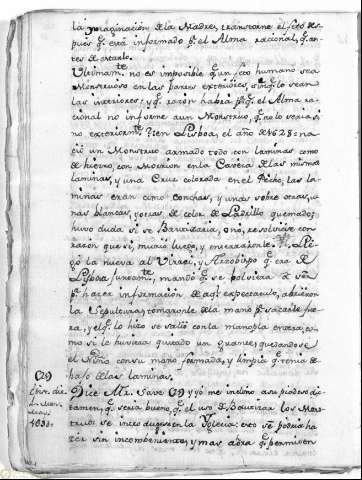 la ymaginacion de la Madre, transtorne el feto des-
pues q.e está informado q.e el Alma racional, q.e an-
tes de
Ultimam.te no es imposible q.e un feto humano sea
Monstruoso en las partes exteriores, sin q.e lo sean
las interiores: y q.e razon habra p.a q.e el Alma ra-
cional no informe aun Monstruo, q.e no lo sería si
no exteriorm.te? en Lisboa, el año de 1628: na-
ció un Monstruo armado todo con laminas como
de hierro, con Morrion en la Cavera de las misma
laminas, y una Cruz colorada en el Pecho, las la-
minas eran como conchas, y unas sobre otras, u-
nas blancas, y otras de color de Ladrillo quemado;
huvo duda si se Bauticaria, o no, resolviose con
razon que si, murió luego, y enterraronle. Lle-
gó la nueva al Virrei, y Arzobispo q.e era de
Lisboa juntam.te, mandó q.e se bolviera a ver
p.a hacer informacion de aq.l espectaculo, abrieron
la Sepultura; tomaronle de la mano p.a sacarle fue-
ra, y el q.e lo hizo se salió con la manopla entera, co-
mo si le huviera quitado un guante; quedandose
el Niño con su mano formada, y limpia q.e tenia de-
bajo de las laminas.
(29) Dice Mr. Save (29) y yó me inclino a su piadoso dic-
tamen, q.e seria bueno q.e el uso de Bautizar los Mons-
truos se introdugera en la Iglesia: esto se podria ha-
cer sin incombeniente, y mas aora q.e permiten
1690.